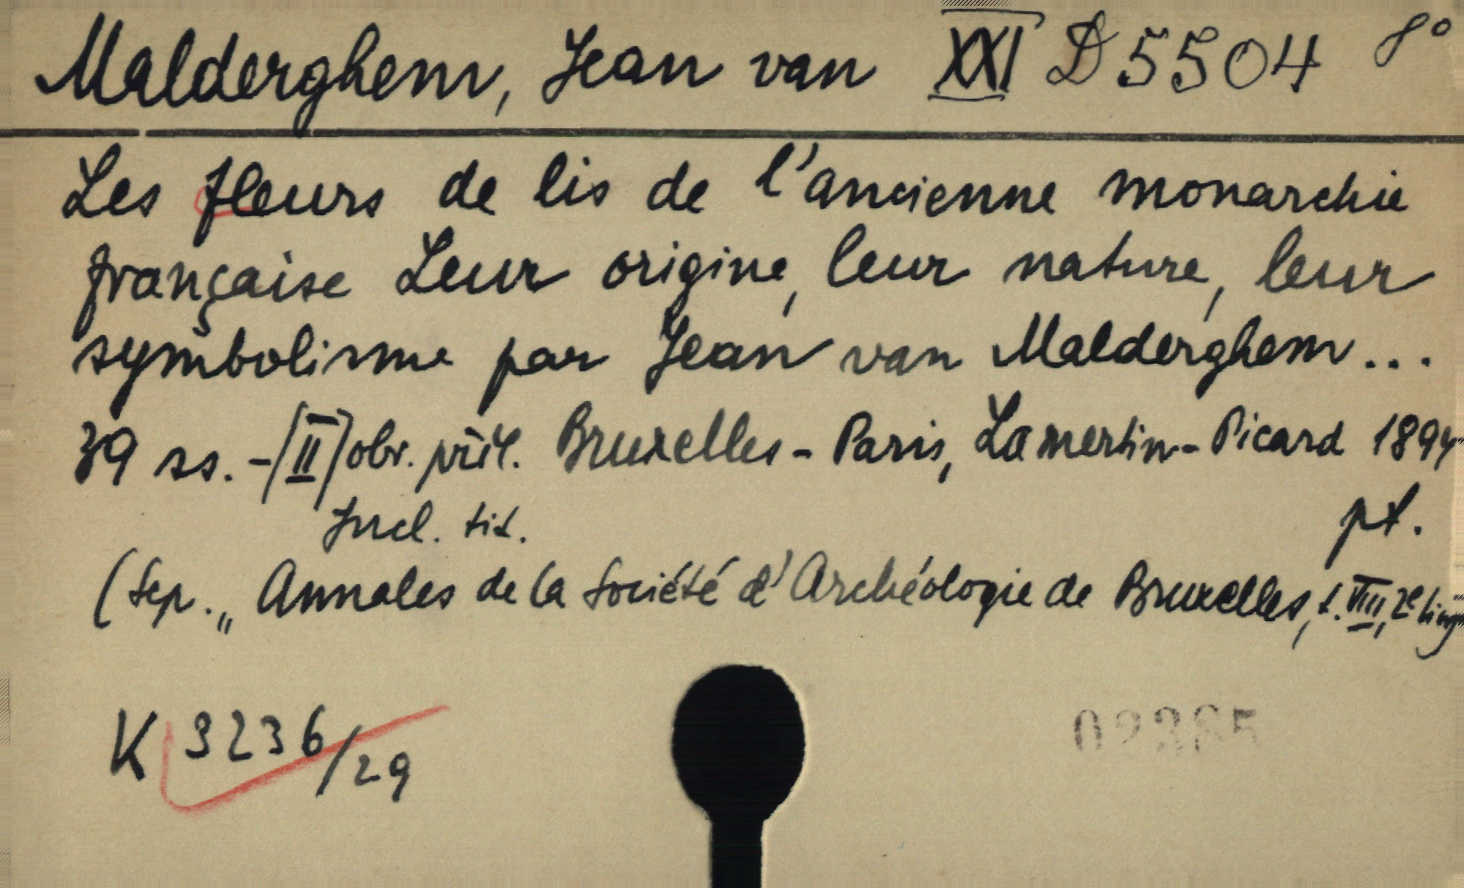 Malderghem, Jean van XXI D 5504 8°
Les fleurs de lis de l'ancienne monarchie
française Leur origine, leur nature, leur
symbolisme par Jean van Malderghem...
39 ss. - [II] obr. příl. Bruxelles - Paris, Lamertin - Picard 1894
Incl. tit. pt.
(Sep. „Annales de la Société d'Archéologie de Bruxelles, t. VIII, 2e
K 3236/29
02385